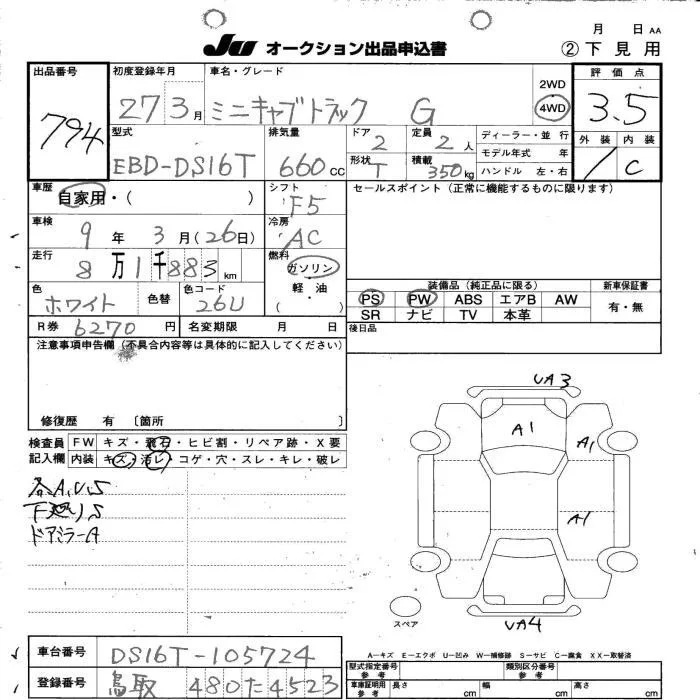 月 日 AA
JU オークション出品申込書 ②下見用
出品番号 794
初度登録年月 27 3月
車名・グレード ミニキャブトラック G
2WD
4WD
評価点 3.5
外装 /
内装 C
型式 EBD-DS16T
排気量 660cc
ドア 2
形状 T
定員 2人
積載 350kg
ディーラー・並行
モデル年式 年
ハンドル 左・右
車歴 自家用・( )
シフト F5
セールスポイント(正常に機能するものに限ります)
車検 9年 3月(26日)
冷房 AC
走行 8万1千883km
燃料 ガソリン
軽・油
( )
色 ホワイト
色替
色コード 26U
装備品(純正品に限る)
新車保証書
PS PW ABS エアB AW
SR ナビ TV 本革
有・無
R券 6270円
名変期限 月 日
後日品
注意事項申告欄(不具合内容等は具体的に記入してください)
修復歴 有 〔箇所 〕
検査員記入欄
FW キズ・飛石・ヒビ割・リペア跡・X要
内装 キズ・汚レ・コゲ・穴・スレ・キレ・破レ
各A.U.S
下廻りS
ドアミラーA
UA3
A1
A1
A1
UA4
スペア
A-キズ E-エクボ U-凹み W-補修跡 S-サビ C-腐食 XX-取替済
車台番号 DS16T-105724
登録番号 鳥取 480た4523
型式指定番号 参考
類別区分番号 参考
車庫証明用 参考
長さ cm
幅 cm
高さ cm